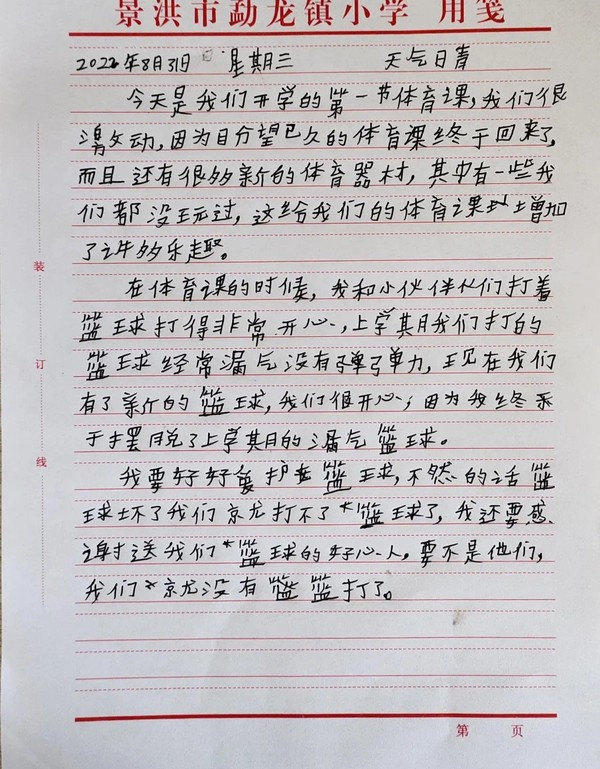 景洪市勐龙镇小学 用笺
2022年8月31日 星期三 天气日青
今天是我们开学的第一节体育课，我们很
激动，因为日分望已久的体育课终于回来了，
而且还有很多新的体育器材，其中有一些我
们都没玩过，这给我们的体育课增加
了许多乐趣。
在体育课的时候，我和小伙伴们打着
篮球打得非常开心，上学期我们打的
篮球经常漏气没有弹弹力，现在我们
有了新的篮球，我们很开心；因为我终
于摆脱了上学期的漏气篮球。
我要好好爱护篮球，不然的话篮
球坏了我们京尤打不了篮球了，我还要感
谢送我们篮球的好心人，要不是他们，
我们京尤没有篮篮打了。
装
订
线
第 页